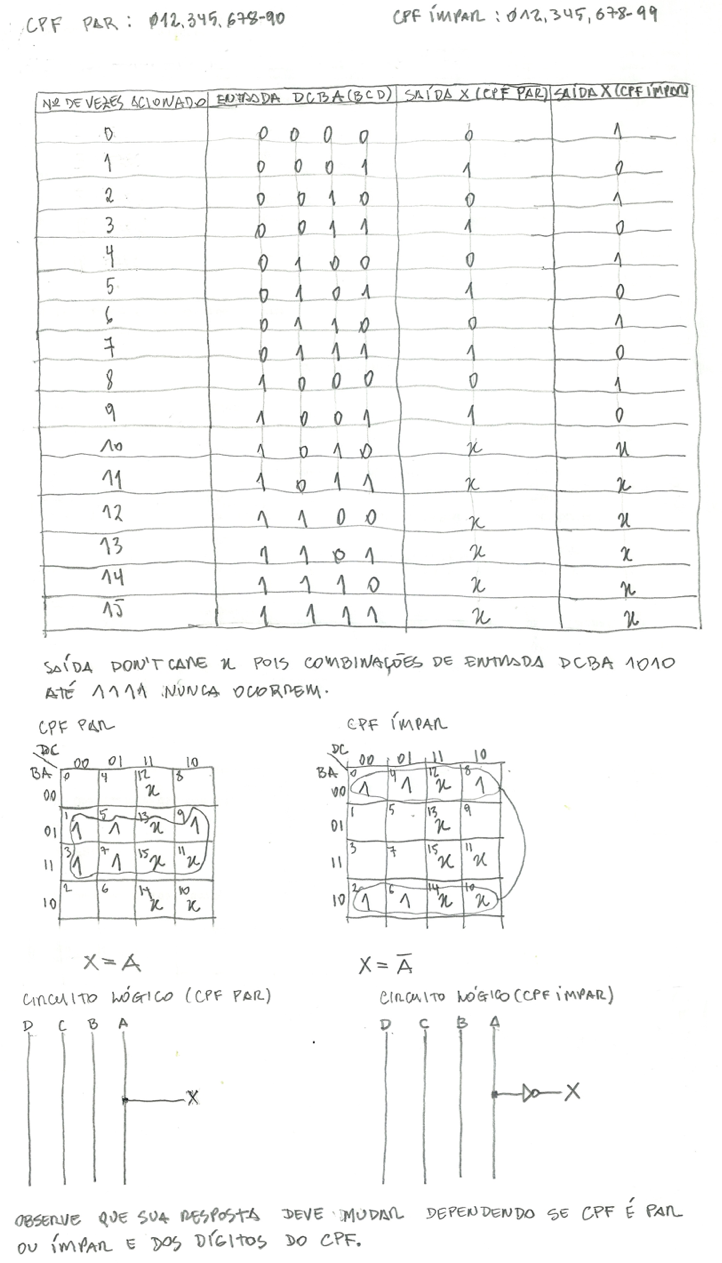 CPF PAR: 012.345.678-90 CPF ÍMPAR: 012,345,678-99
Nº DE VEZES ACIONADO ENTRADA DCBA (BCD) SAÍDA X (CPF PAR) SAÍDA X (CPF ÍMPAR)
0 0 0 0 0 0 1
1 0 0 0 1 1 0
2 0 0 1 0 0 1
3 0 0 1 1 1 0
4 0 1 0 0 0 1
5 0 1 0 1 1 0
6 0 1 1 0 0 1
7 0 1 1 1 1 0
8 1 0 0 0 0 1
9 1 0 0 1 1 0
10 1 0 1 0 x x
11 1 0 1 1 x x
12 1 1 0 0 x x
13 1 1 0 1 x x
14 1 1 1 0 x x
15 1 1 1 1 x x
SAÍDA DON'T CARE x POIS COMBINAÇÕES DE ENTRADA DCBA 1010
ATÉ 1111 NUNCA OCORREM.
CPF PAR CPF ÍMPAR
DC DC
00 01 11 10 00 01 11 10
BA 0 4 12 8 BA 0 4 12 8
00 x 00 1 1 x 1
1 5 13 9 1 5 13 9
01 1 1 x 1 01 x
3 7 15 11 3 7 15 11
11 1 1 x x 11 x x
2 6 14 10 2 6 14 10
10 x x 10 1 1 x x
X = A X = A̅
CIRCUITO LÓGICO (CPF PAR) CIRCUITO LÓGICO (CPF ÍMPAR)
D C B A D C B A
X X
OBSERVE QUE SUA RESPOSTA DEVE MUDAR DEPENDENDO SE CPF É PAR
OU ÍMPAR E DOS DÍGITOS DO CPF.